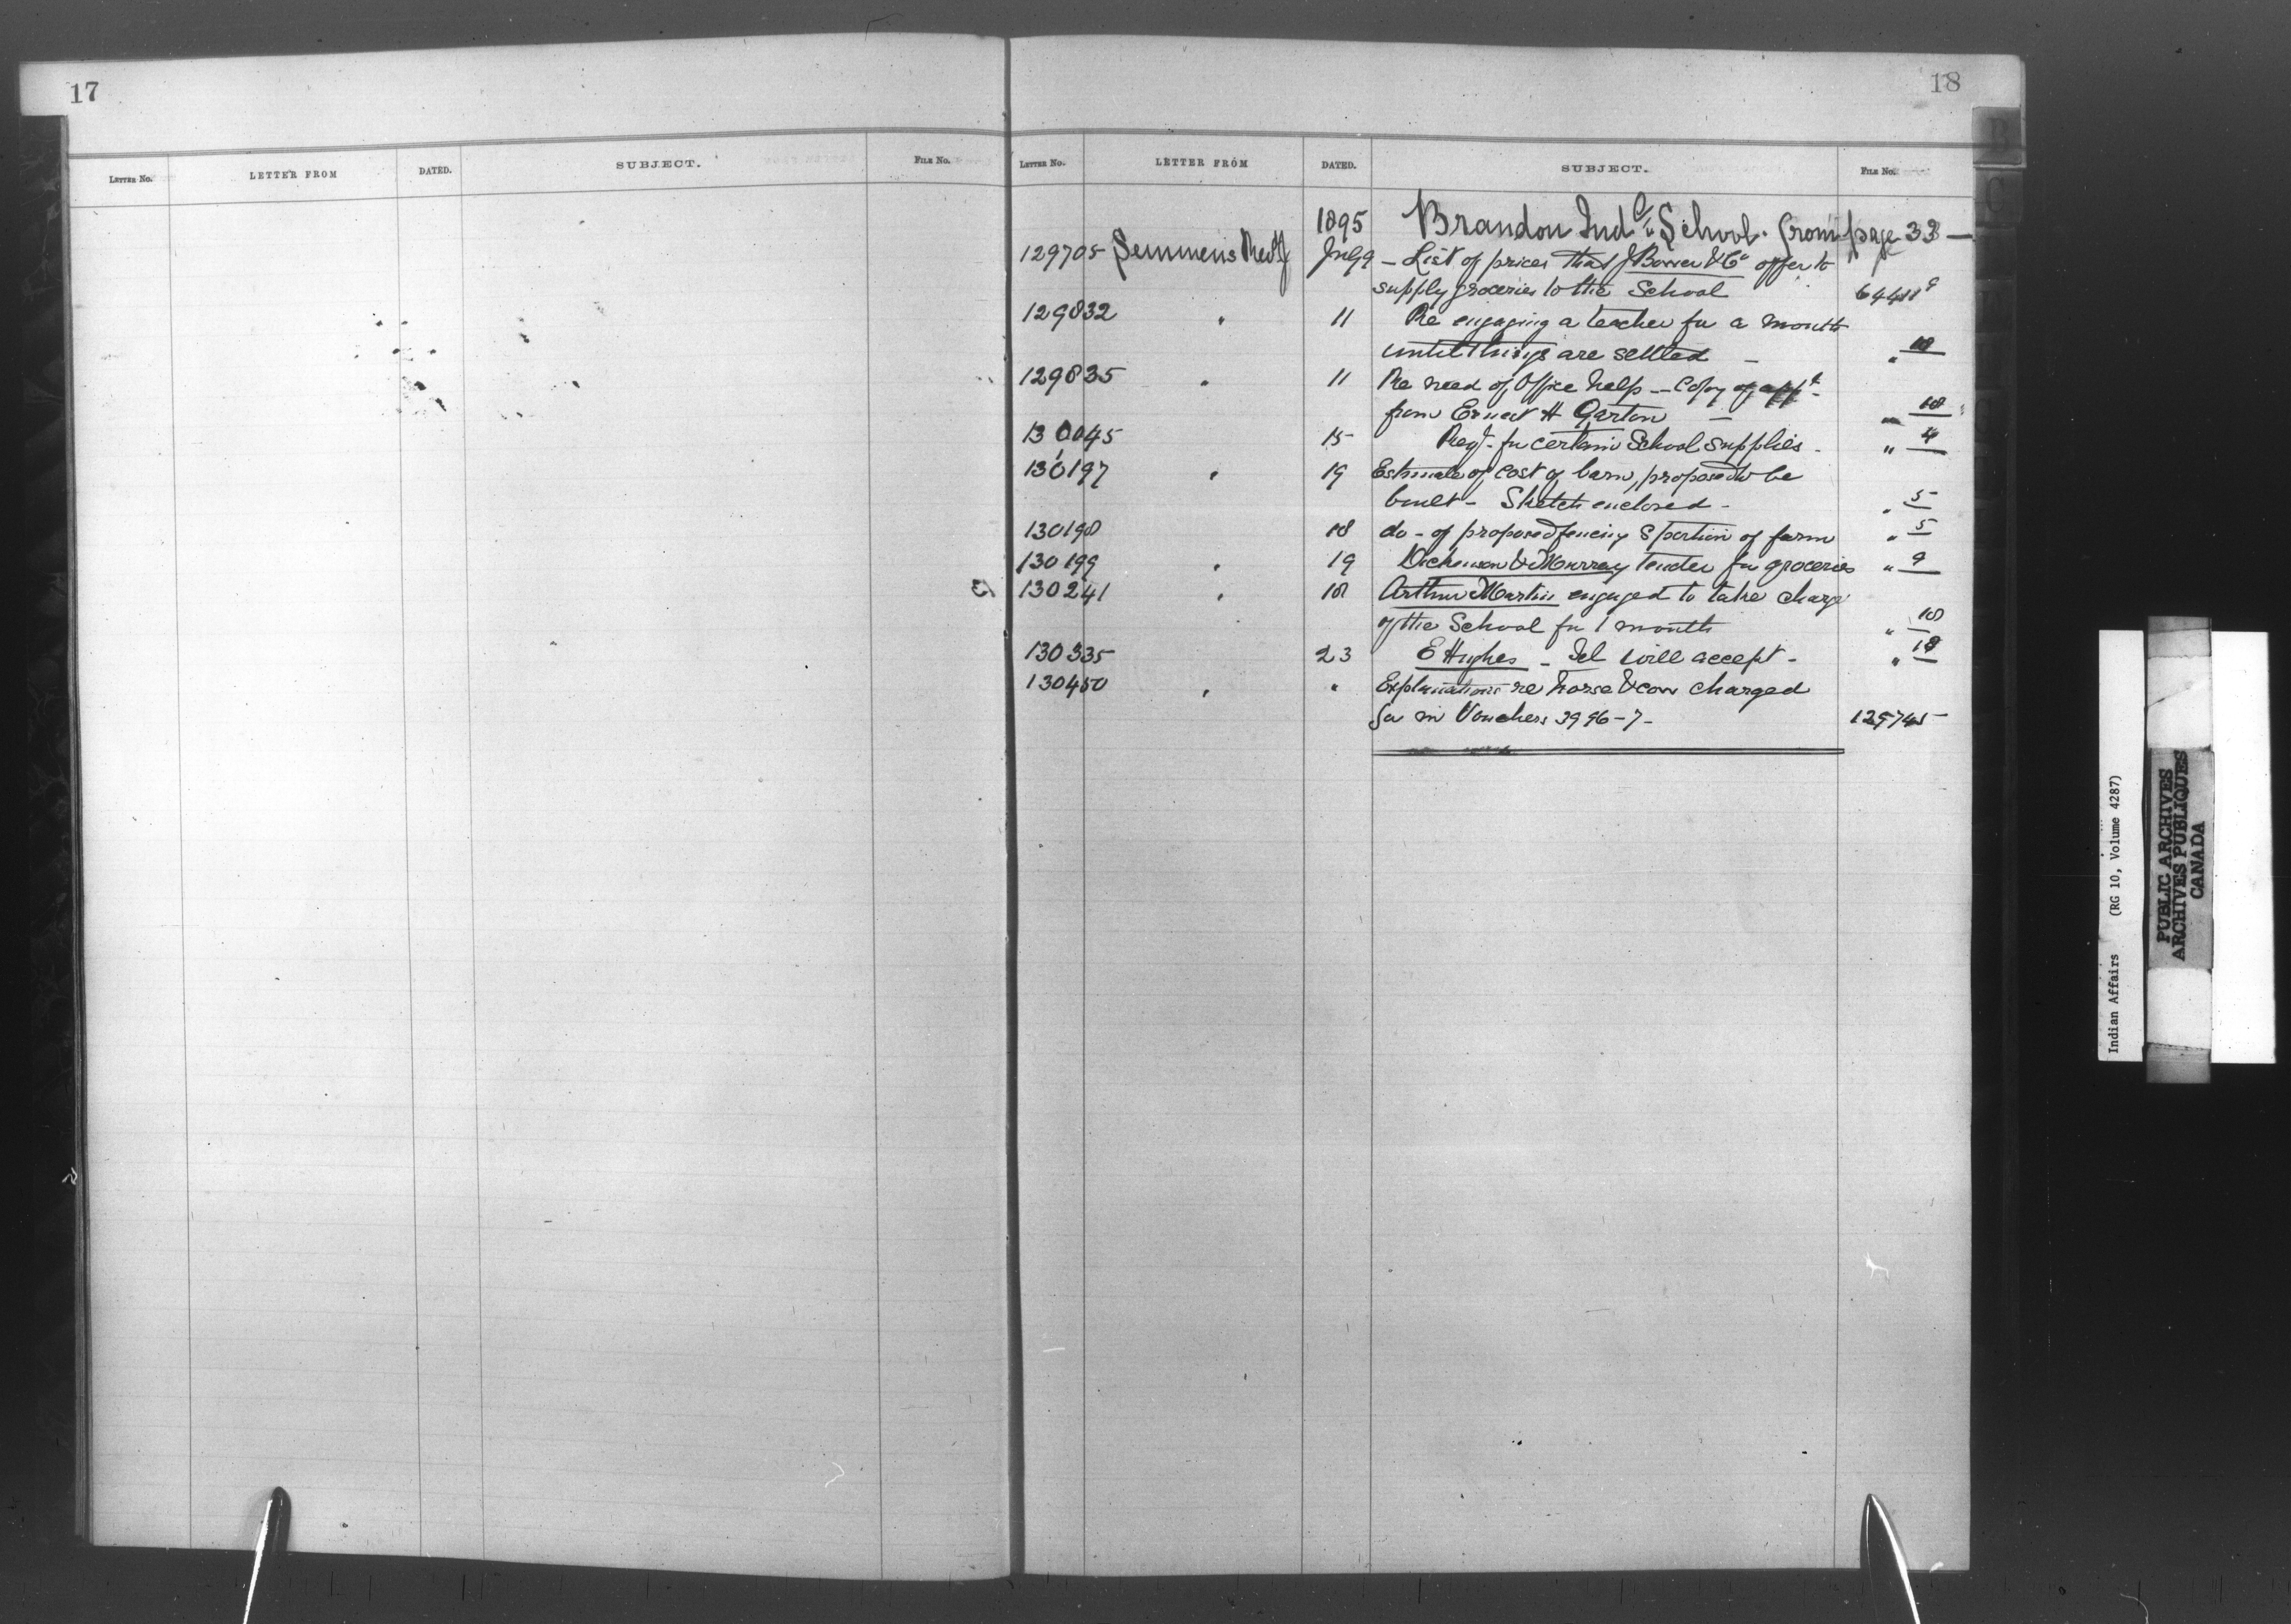 17
LETTER No. LETTER FROM DATED. SUBJECT. FILE No.
18
LETTER No. LETTER FROM DATED. SUBJECT. FILE No.
1895 Brandon Ind. School. from page 33 —
129705 Semmens Rev J July 9 – List of prices that J Bower & Co offer to
supply groceries to the School 64411 9
129832 " 11 Re engaging a teacher for a month
until things are settled – " 18
129835 " 11 Re need of Office help – Copy of appt
from Ernest H Garton – " 18
130045 15 Reqn. for certain School supplies. " 4
130197 " 19 Estimate of cost of barn, proposed to be
built – Sketch enclosed – " 5
130198 18 do – of proposed fencing S portion of farm " 5
130199 " 19 Dickenson & Murray tender for groceries " 9
130241 " 18 Arthur Martin engaged to take charge
of the School for 1 month " 18
130335 23 E Hughes – Tel will accept – " 18
130450 " " Explanations re horse & cow charged
for in Vouchers 3996–7 – 129745
B
C
Indian Affairs (RG 10, Volume 4287)
PUBLIC ARCHIVES
ARCHIVES PUBLIQUES
CANADA